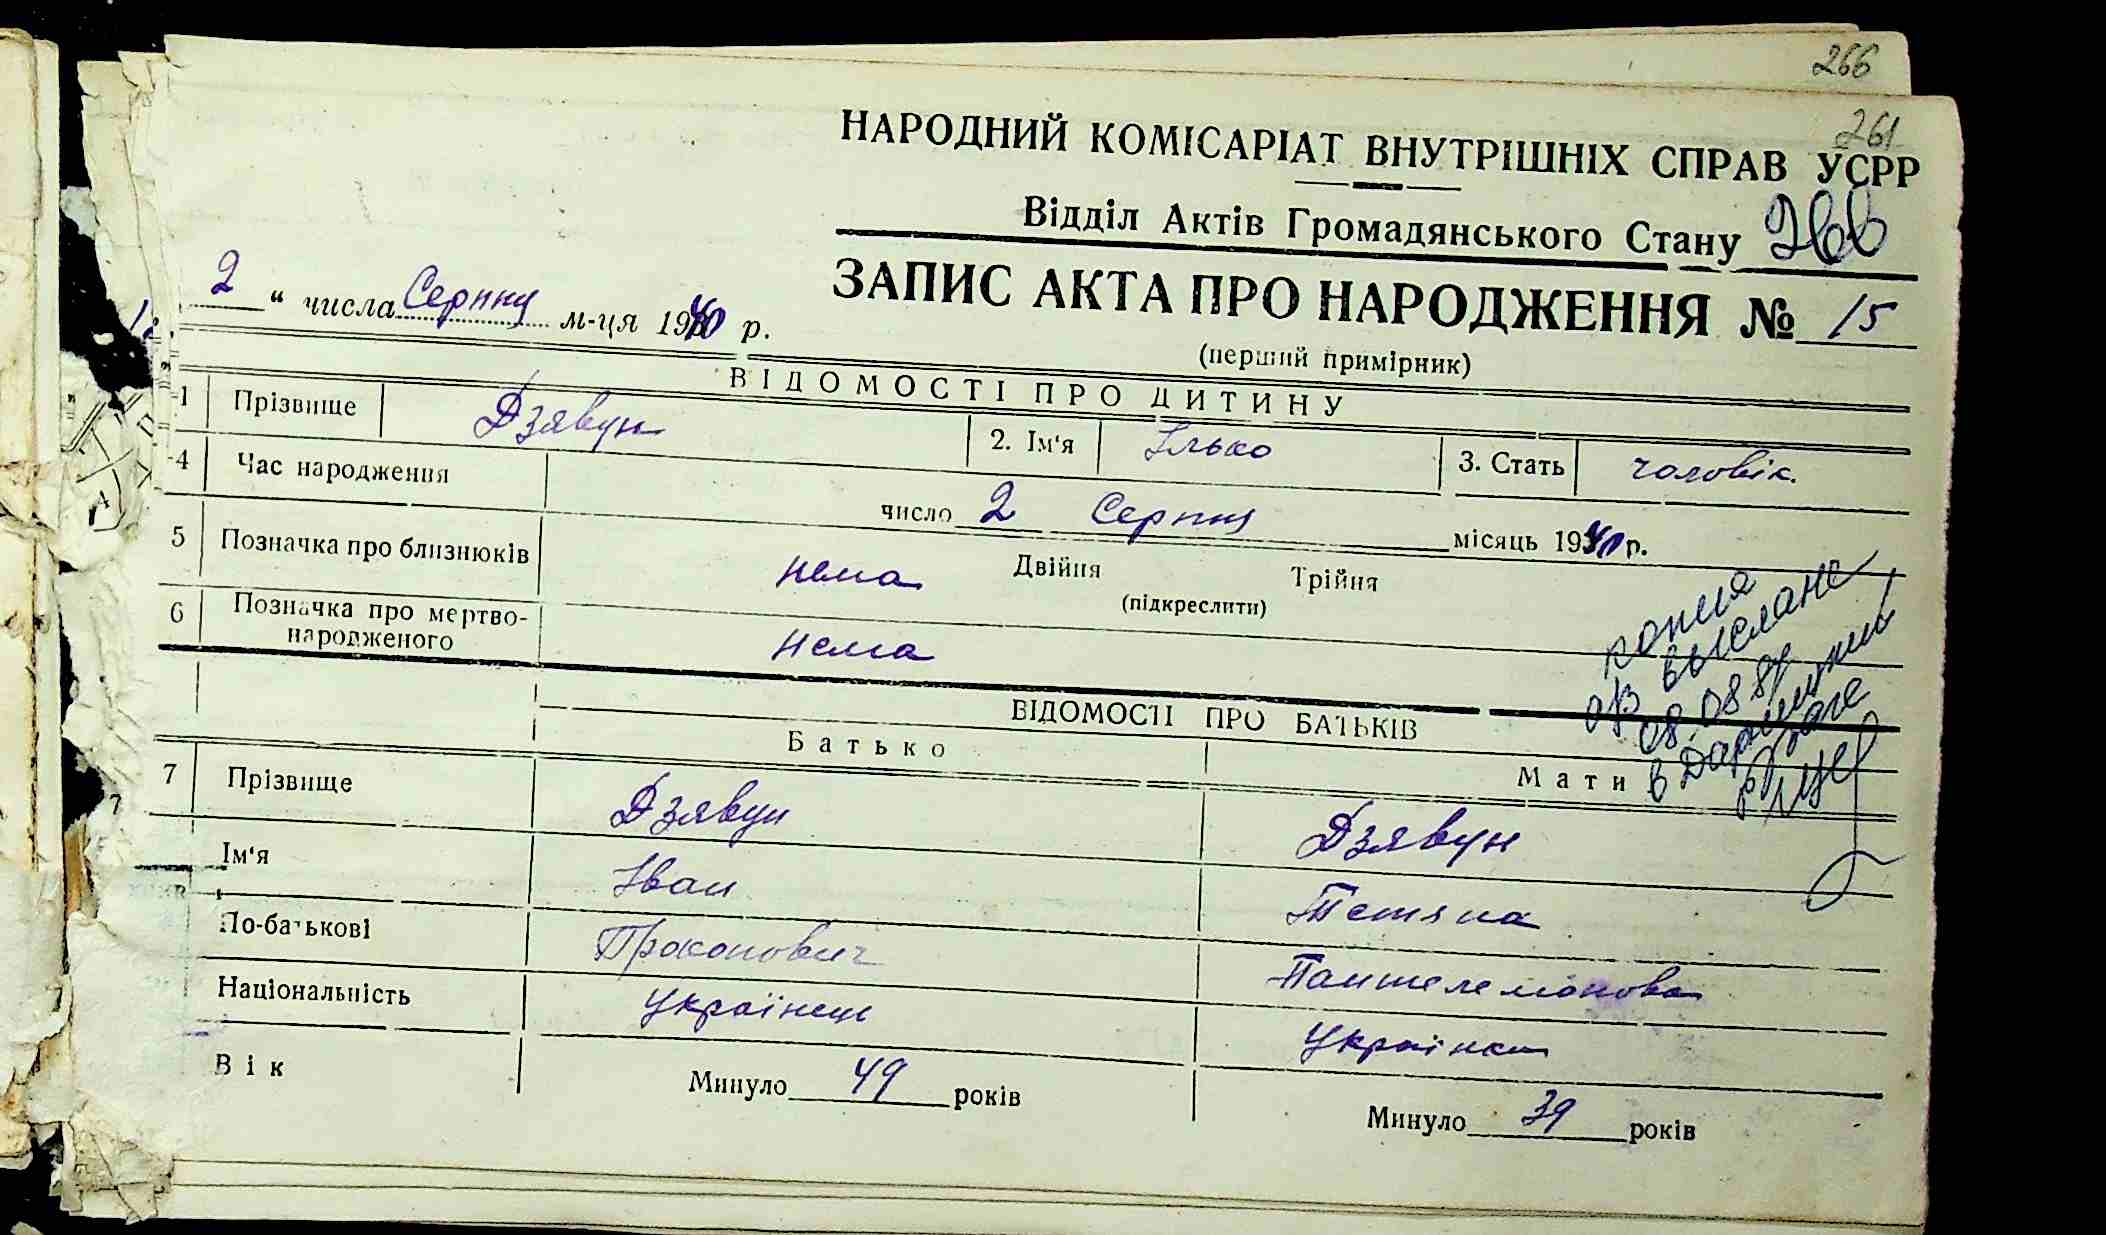 266
261
НАРОДНИЙ КОМІСАРІАТ ВНУТРІШНІХ СПРАВ УСРР
Відділ Актів Громадянського Стану 266
2 " числа Серпня м-ця 1940 р.
ЗАПИС АКТА ПРО НАРОДЖЕННЯ № 15
(перший примірник)
ВІДОМОСТІ ПРО ДИТИНУ
1 Прізвище Дзявун 2. Ім'я Ілько 3. Стать чоловік.
4 Час народження число 2 Серпня місяць 1940 р.
5 Позначка про близнюків нема Двійня Трійня
(підкреслити)
6 Позначка про мертво-
народженого нема
копия
выслане
08.08.84
в
ВІДОМОСТІ ПРО БАТЬКІВ
Батько Мати
7 Прізвище Дзявун Дзявун
Ім'я Іван Тетяна
По-батькові Прокопович Пантелемонова
Національність Українець Українка
Вік Минуло 49 років Минуло 39 років